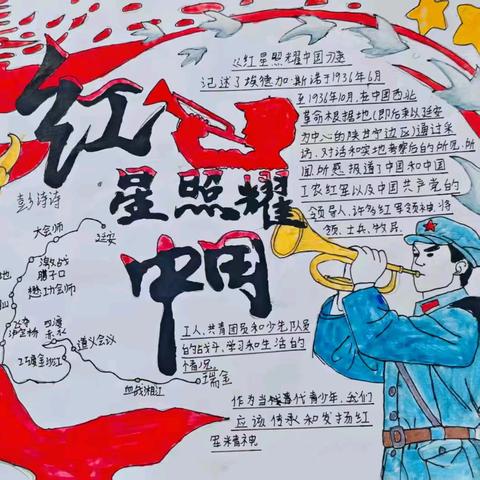 《红星照耀中国》这
记述了埃德加·斯诺于1936年6月
至1936年10月,在中国西北
革命根据地(即后来以延安
为中心的陕甘宁边区)通过采
访、对话和实地考察后的所见、所
闻、所感,报道了中国和中国
工农红军以及中国共产党的
领导人,许多红军领袖、将
领、士兵、牧民、
工人、共青团员和少先队员
的战斗、学习和生活的
情况。
作为当代青少年,我们
应该传承和发扬红
星精神
红
星照耀
中国
彭诗诗
大会师
延安
激战
腊子口
懋功会师
飞夺
泸定桥
四渡
赤水
巧渡金沙江
遵义会议
血战湘江
瑞金